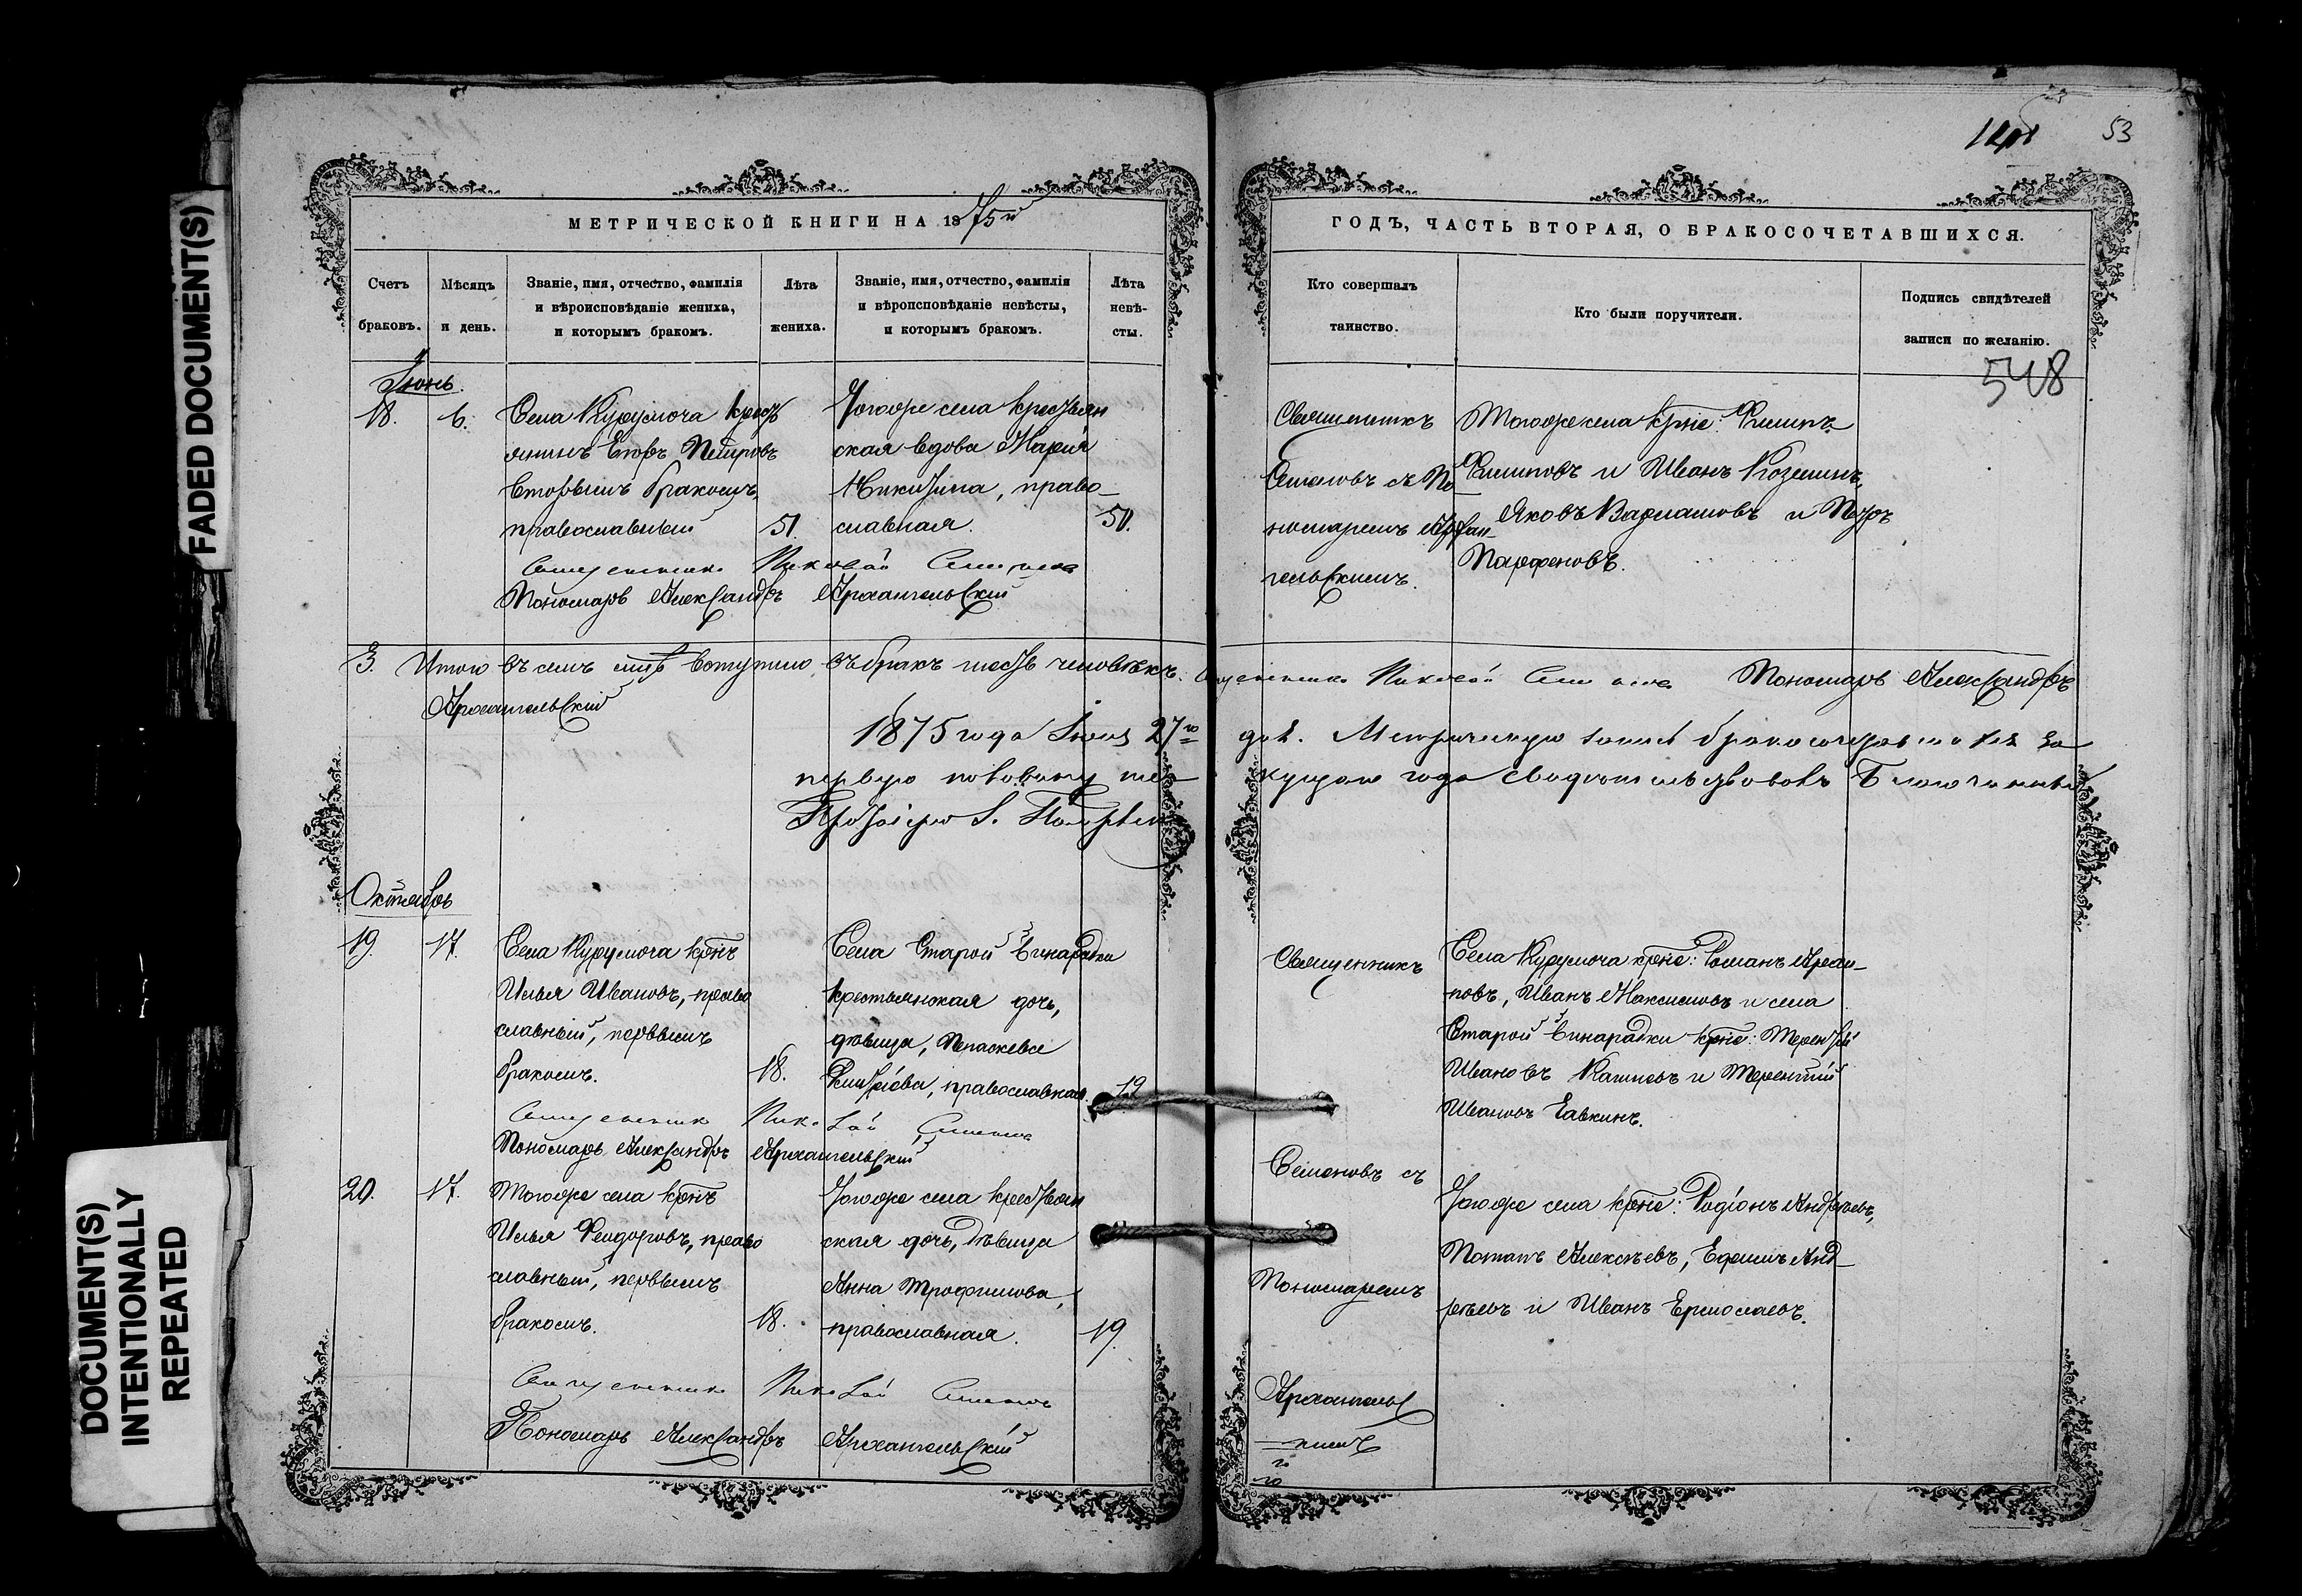 FADED DOCUMENT(S)
DOCUMENT(S)
INTENTIONALLY
REPEATED
53
МЕТРИЧЕСКОЙ КНИГИ НА 1875й
Счетъ
браковъ.
Мѣсяцъ
и день.
Званіе, имя, отчество, фамилія
и вѣроисповѣданіе жениха,
и которымъ бракомъ.
Лѣта
жениха.
Званіе, имя, отчество, фамилія
и вѣроисповѣданіе невѣсты,
и которымъ бракомъ.
Лѣта
невѣ-
сты.
Іюнь.
18.
6.
Села Курумоча крест
янинъ Егоръ Петровъ
вторымъ бракомъ,
православный
51.
Тогоже села крестьян
ская вдова Марія
Никитина, право-
славная.
50.
Священникъ Николай Семеновъ
Пономарь Александръ Архангельскій
3. Итого въ семъ м-цѣ вступило въ бракъ шесть человѣкъ.
Архангельскій
1875 года Іюля 27го
первую половину те-
Протоіерей І.
Октябрь
19.
17.
Села Курумоча крнъ
Илья Ивановъ, право
славный, первымъ
бракомъ.
18.
Села Старой Бинарадки
крестьянская дочь,
дѣвица, Параскева
православная.
19
Священникъ Николай Семеновъ
Пономарь Александръ Архангельскій
20.
17.
Тогоже села крнъ
Илья Феодоровъ, право
славный, первымъ
бракомъ.
18.
Тогоже села крестьян
ская дочь, дѣвица
Анна Трофимова,
православная.
19.
Священникъ Николай Семеновъ
Пономарь Александръ Архангельскій
ГОДЪ, ЧАСТЬ ВТОРАЯ, О БРАКОСОЧЕТАВШИХСЯ.
Кто совершалъ
таинство.
Кто были поручители.
Подпись свидѣтелей
записи по желанію.
548
Священникъ
Семеновъ съ По-
номаремъ Архан-
гельскимъ.
Тогоже села крне: Филипъ
Филиповъ и Иванъ Козминъ,
Яковъ Варламовъ и Петръ
Парфеновъ.
Священникъ Николай Семеновъ Пономарь Александръ
дня. Метрическую запись бракосочетавшихся за
кущаго года свидѣтельствовалъ Благочинный
Священникъ
Семеновъ съ
Пономаремъ
Архангельс
кимъ
Села Курумоча крне: Романъ Архи-
повъ, Иванъ Максимовъ и села
Старой Бинарадки крне: Терентій
Ивановъ Кашаевъ и Терентій
Ивановъ Савкинъ.
Тогоже села крне: Родіонъ Андреевъ,
Потапъ Алексѣевъ, Ефимъ Анд-
реевъ и Иванъ Ермолаевъ.